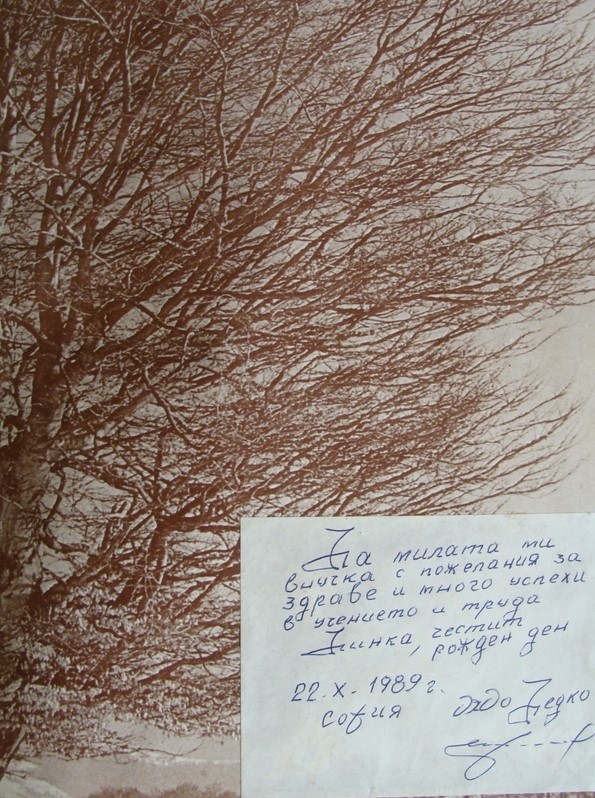 На милата ми
внучка с пожелания за
здраве и много успехи
в учението и труда
Нинка, честит
рожден ден
22.X.-1989 г.
София дядо Недко